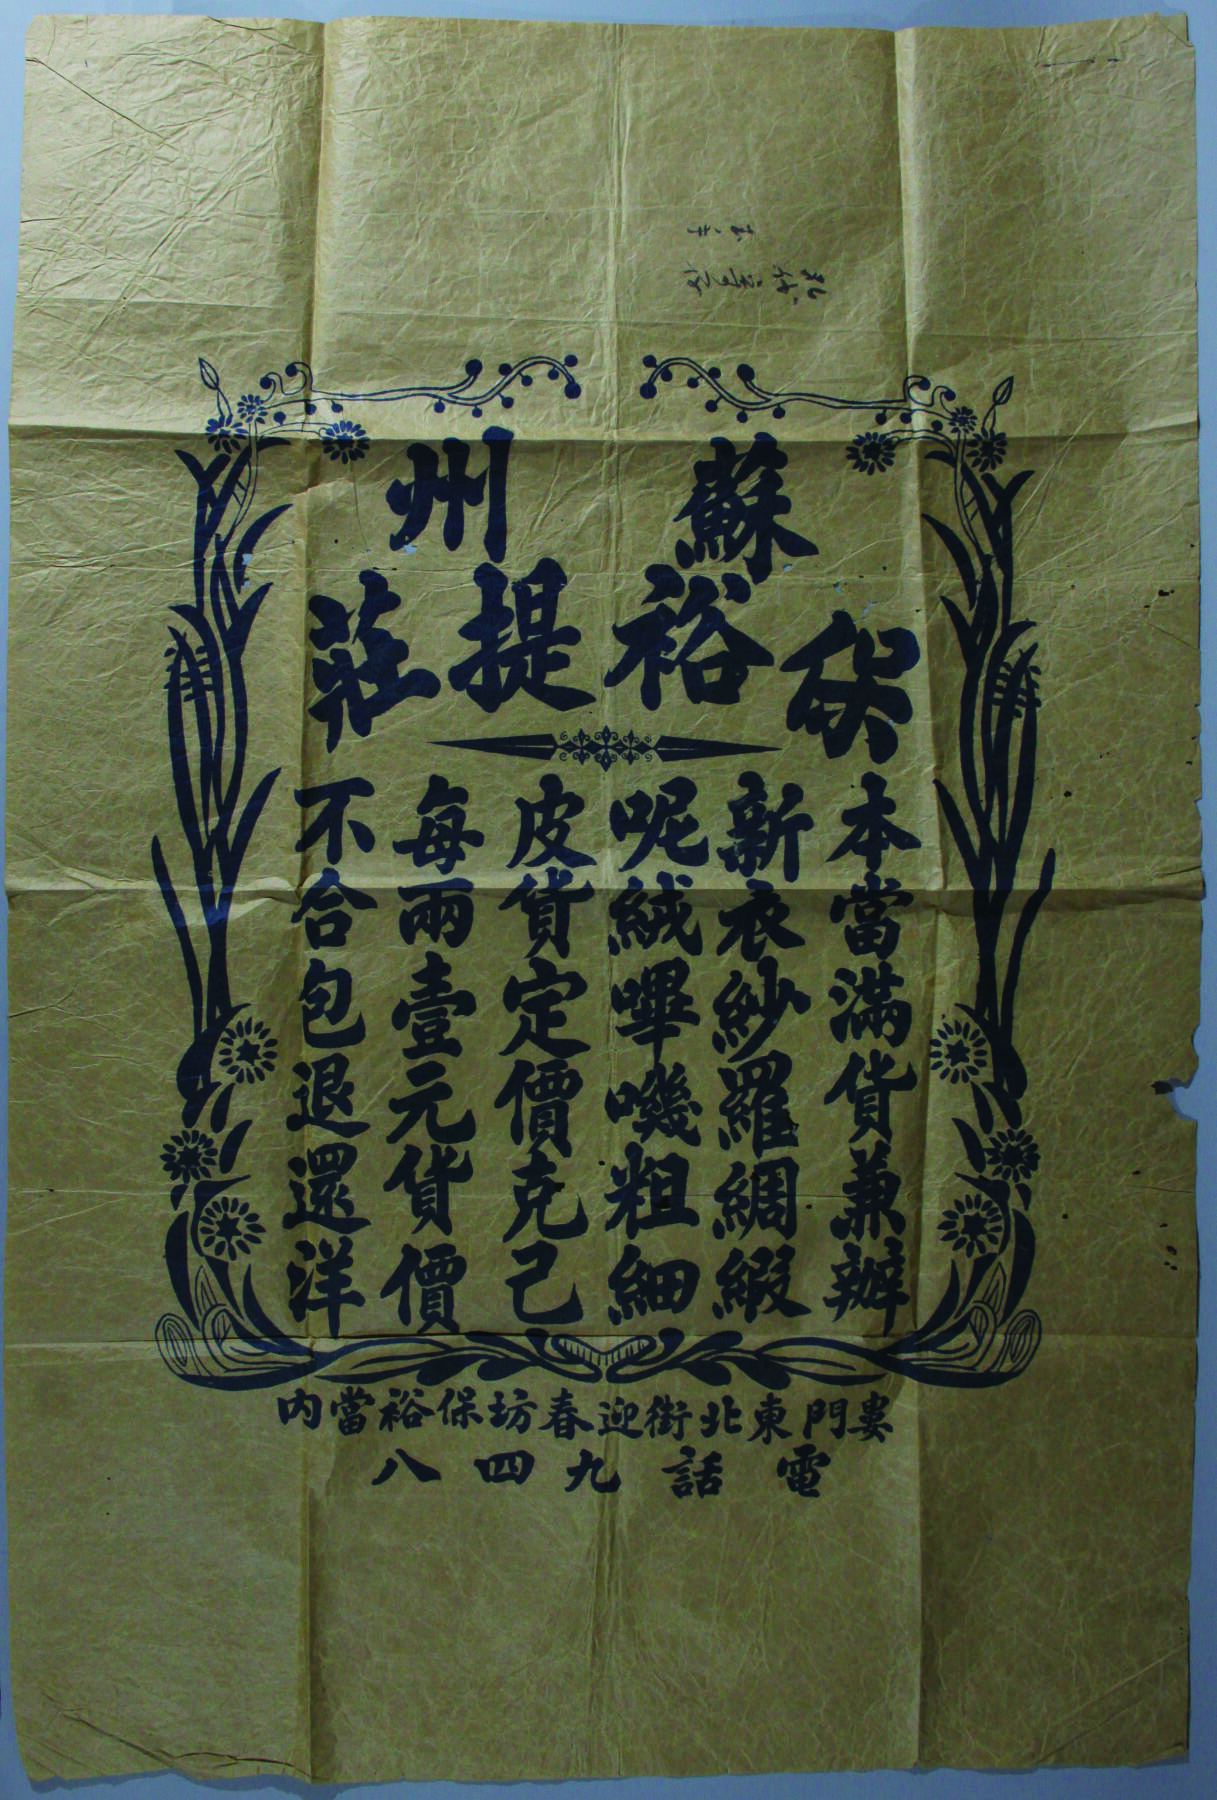 蘇州
保裕提莊
本當滿貨兼辦
新衣紗羅綢緞
呢絨嗶嘰粗細
皮貨定價克己
每兩壹元貨價
不合包退還洋
婁門東北街迎春坊保裕當內
電話九四八